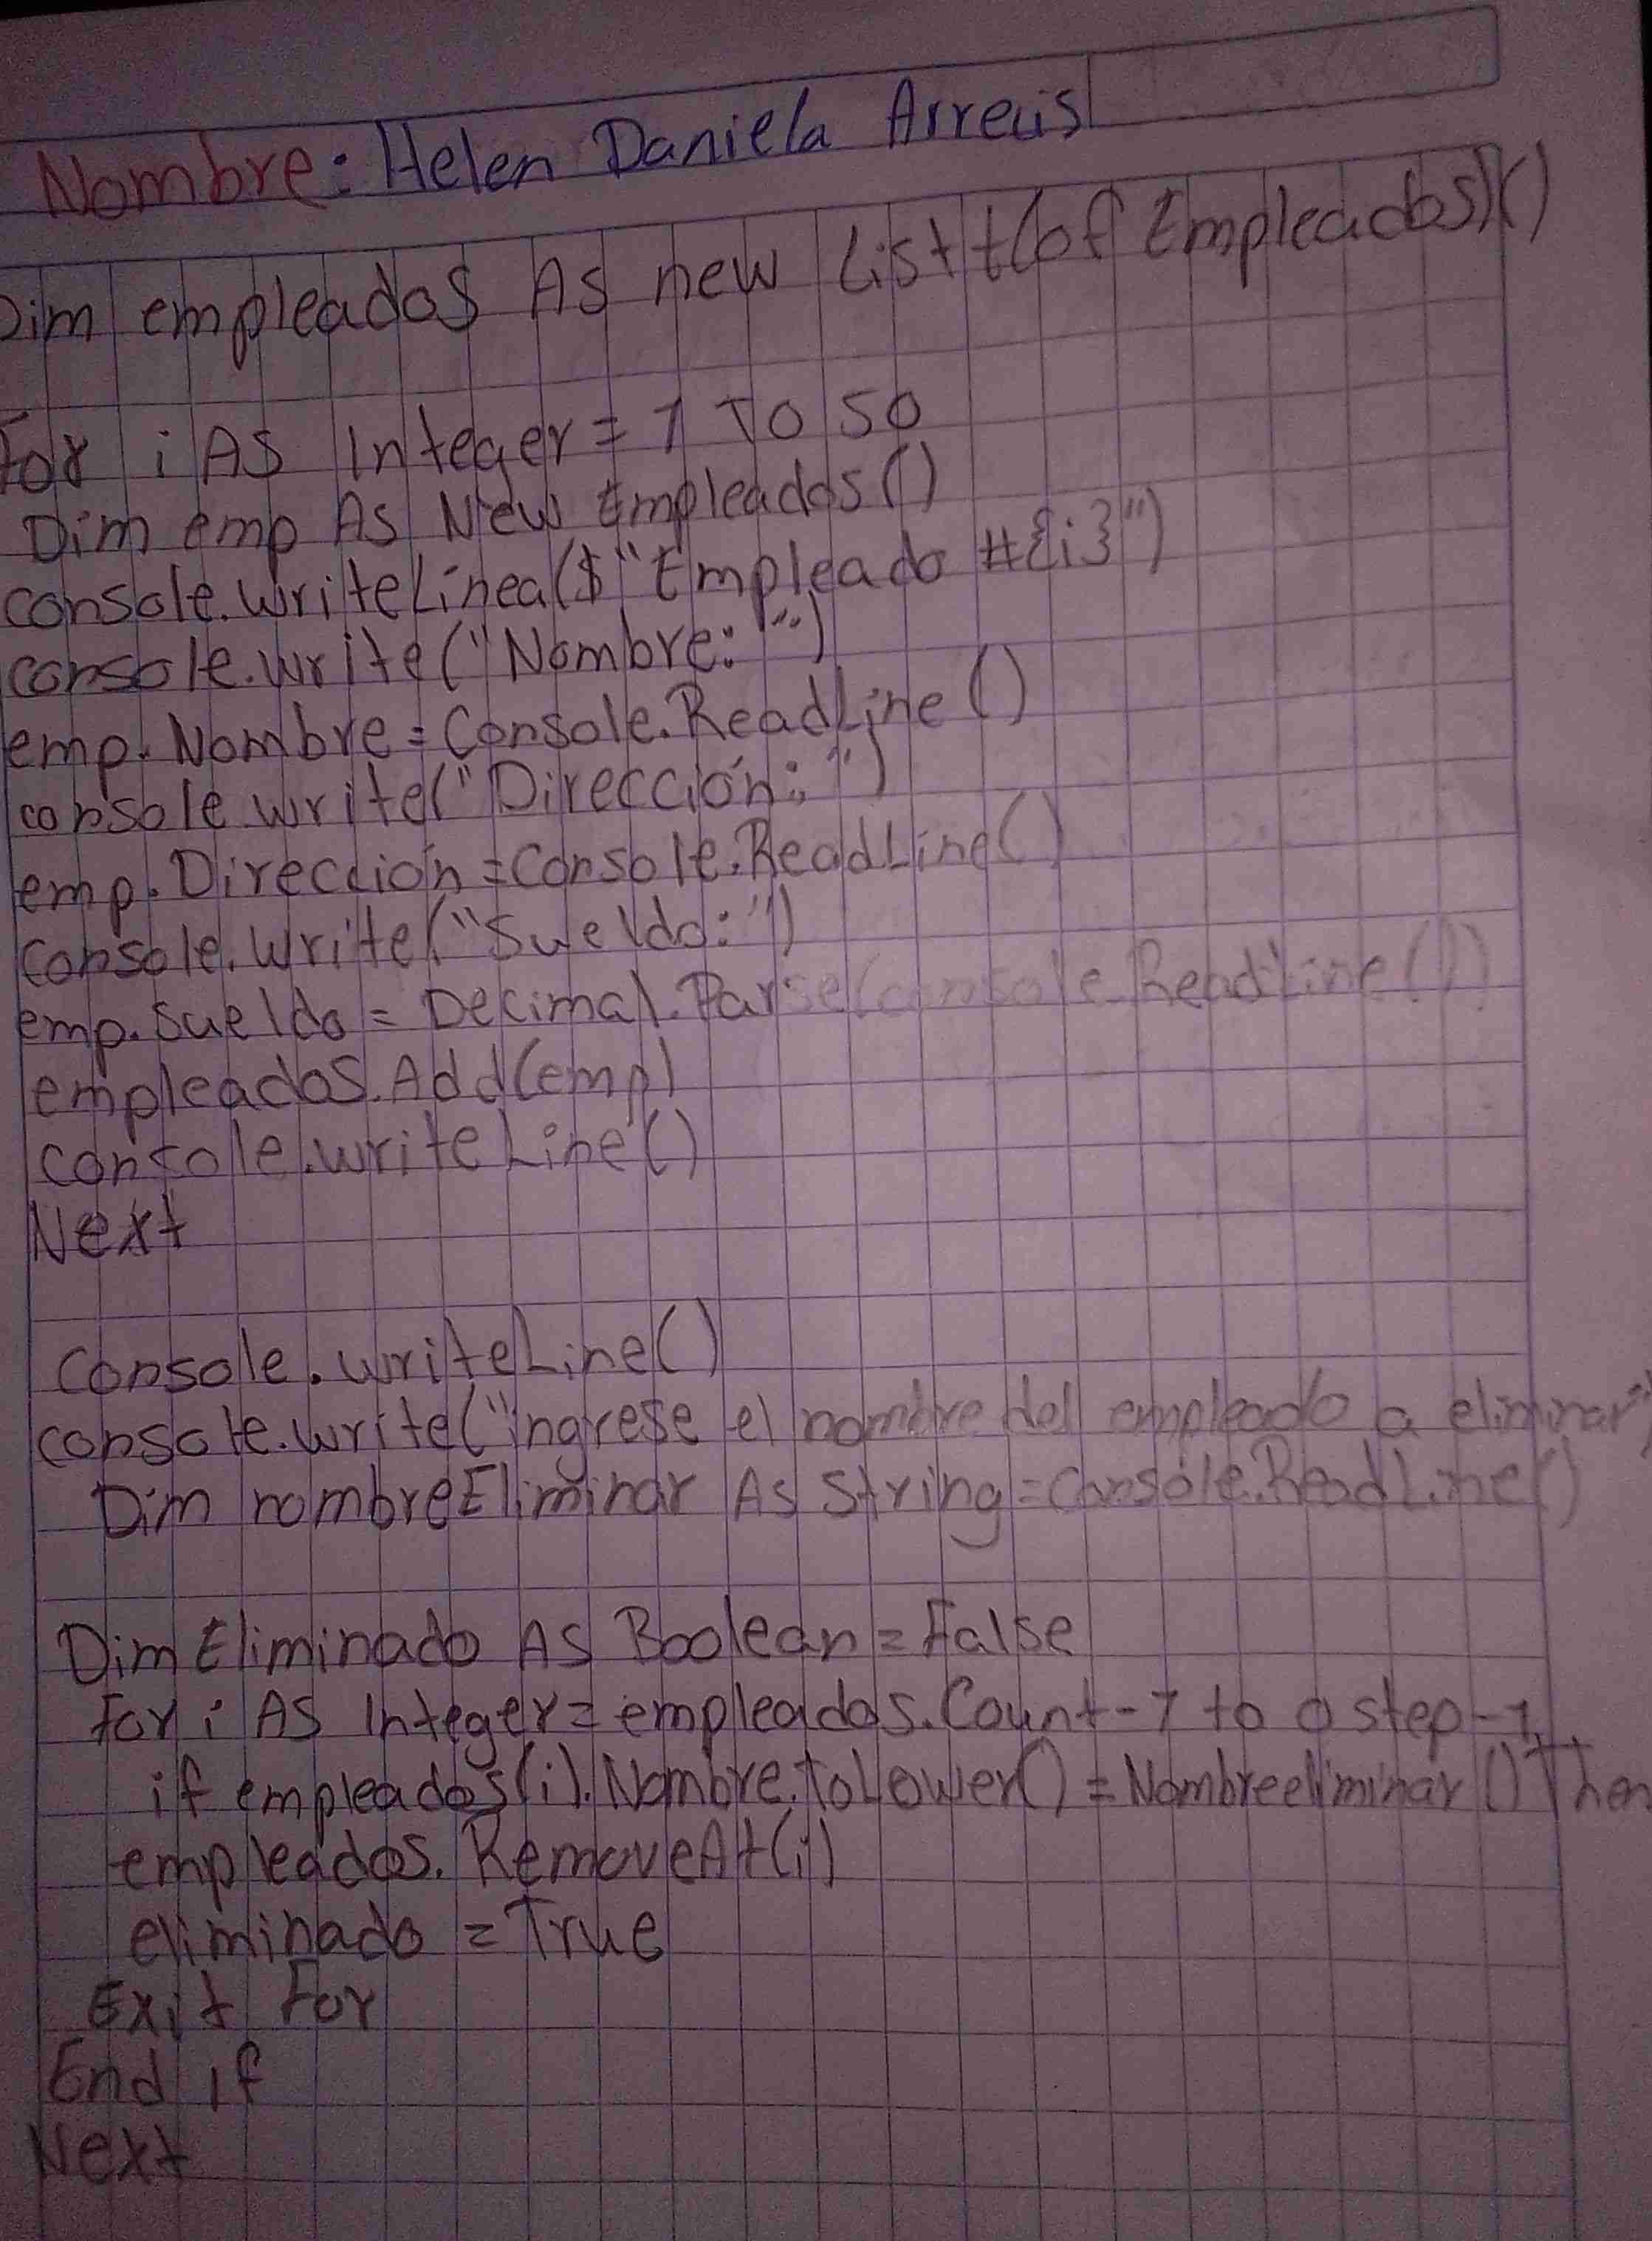 Nombre: Helen Daniela Arreus
Dim empleados As new List t(of Empleados)()
For i As Integer = 1 To 50
Dim emp As New Empleados()
console.writeLinea($"Empleado #{i}")
console.write("Nombre: ")
emp.Nombre = Console.ReadLine()
console.write("Dirección: ")
emp.Dirección = Console.ReadLine()
Console.Write("Sueldo:")
emp.Sueldo = Decimal.Parse(console.ReadLine())
empleados.Add(emp)
console.writeLine()
Next
Console.writeLine()
console.write("ingrese el nombre del empleado a eliminar")
Dim nombreEliminar As String = Console.ReadLine()
Dim Eliminado As Boolean = False
For i As Integer = empleados.Count-1 to 0 step -1
if empleados(i).Nombre.ToLower() = Nombreeliminar() Then
empleados.RemoveAt(i)
eliminado = True
Exit For
End if
Next